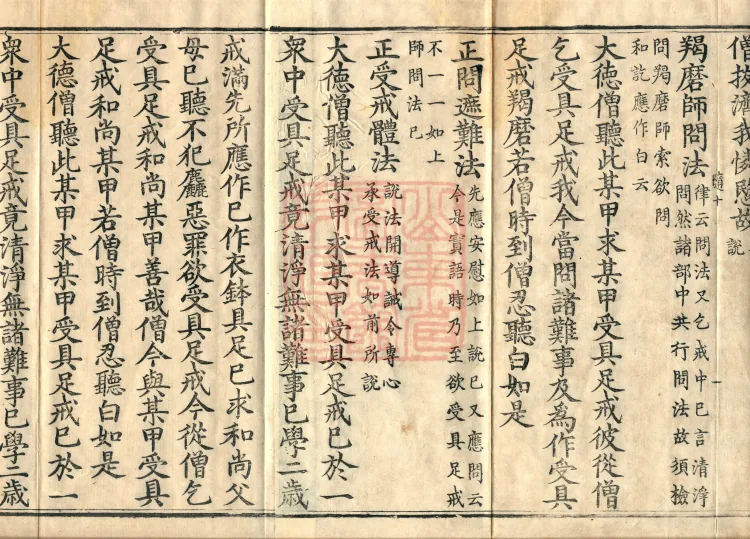 僧拔濟我怜愍故
說
隨十
一
羯磨師問法
律云問法又乞戒中已言清淨
問然諸部中共行問法故須撿
問羯磨師索欲問
和訖應作白云
大德僧聽此某甲求某甲受具足戒彼從僧
乞受具足戒我今當問諸難事及為作受具
足戒羯磨若僧時到僧忍聽白如是
正問遮難法
先應安慰如上說已又應問云
今是實語時乃至欲受具足戒
不一一如上
師問法已
正受戒體法
說法開導誡令專心
承受戒法如前所說
大德僧聽此某甲求某甲受具足戒已於一
衆中受具足戒竟清淨無諸難事已學二歲
戒滿先所應作已作衣鉢具足已求和尚父
母已聽不犯麤惡罪欲受具足戒今從僧乞
受具足戒和尚某甲善哉僧今與某甲受具
足戒和尚某甲若僧時到僧忍聽白如是
大德僧聽此某甲求某甲受具足戒已於一
衆中受具足戒竟清淨無諸難事已學二歲